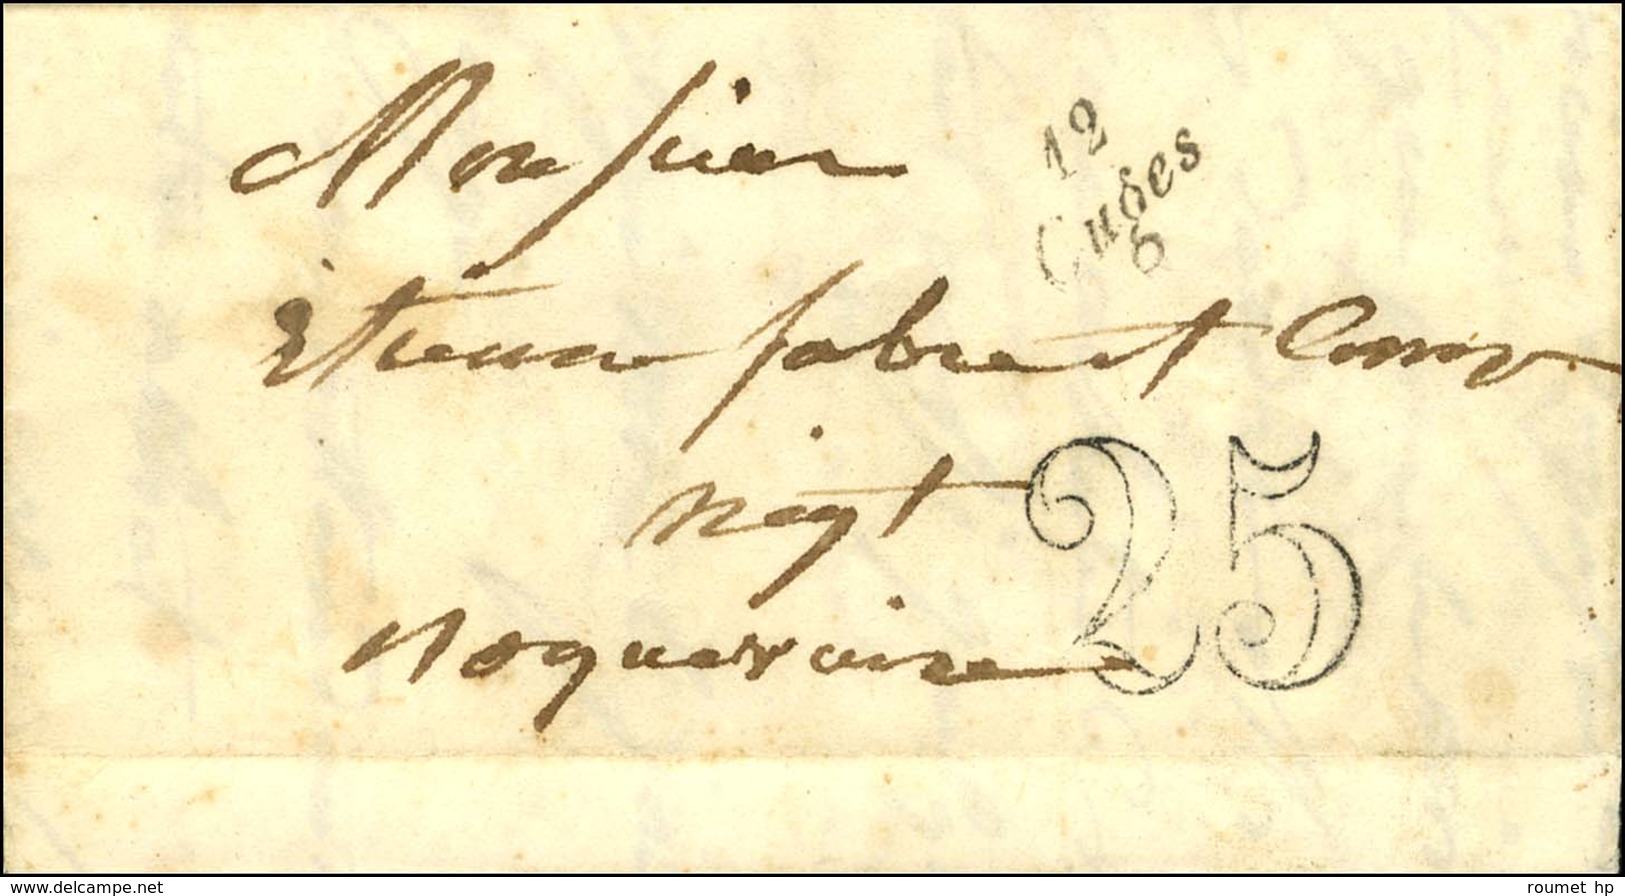 Monsieur
12
Cuges
Etienne fabre et Comp
negt
Roquevaire
25
www.delcampe.net
roumet hp